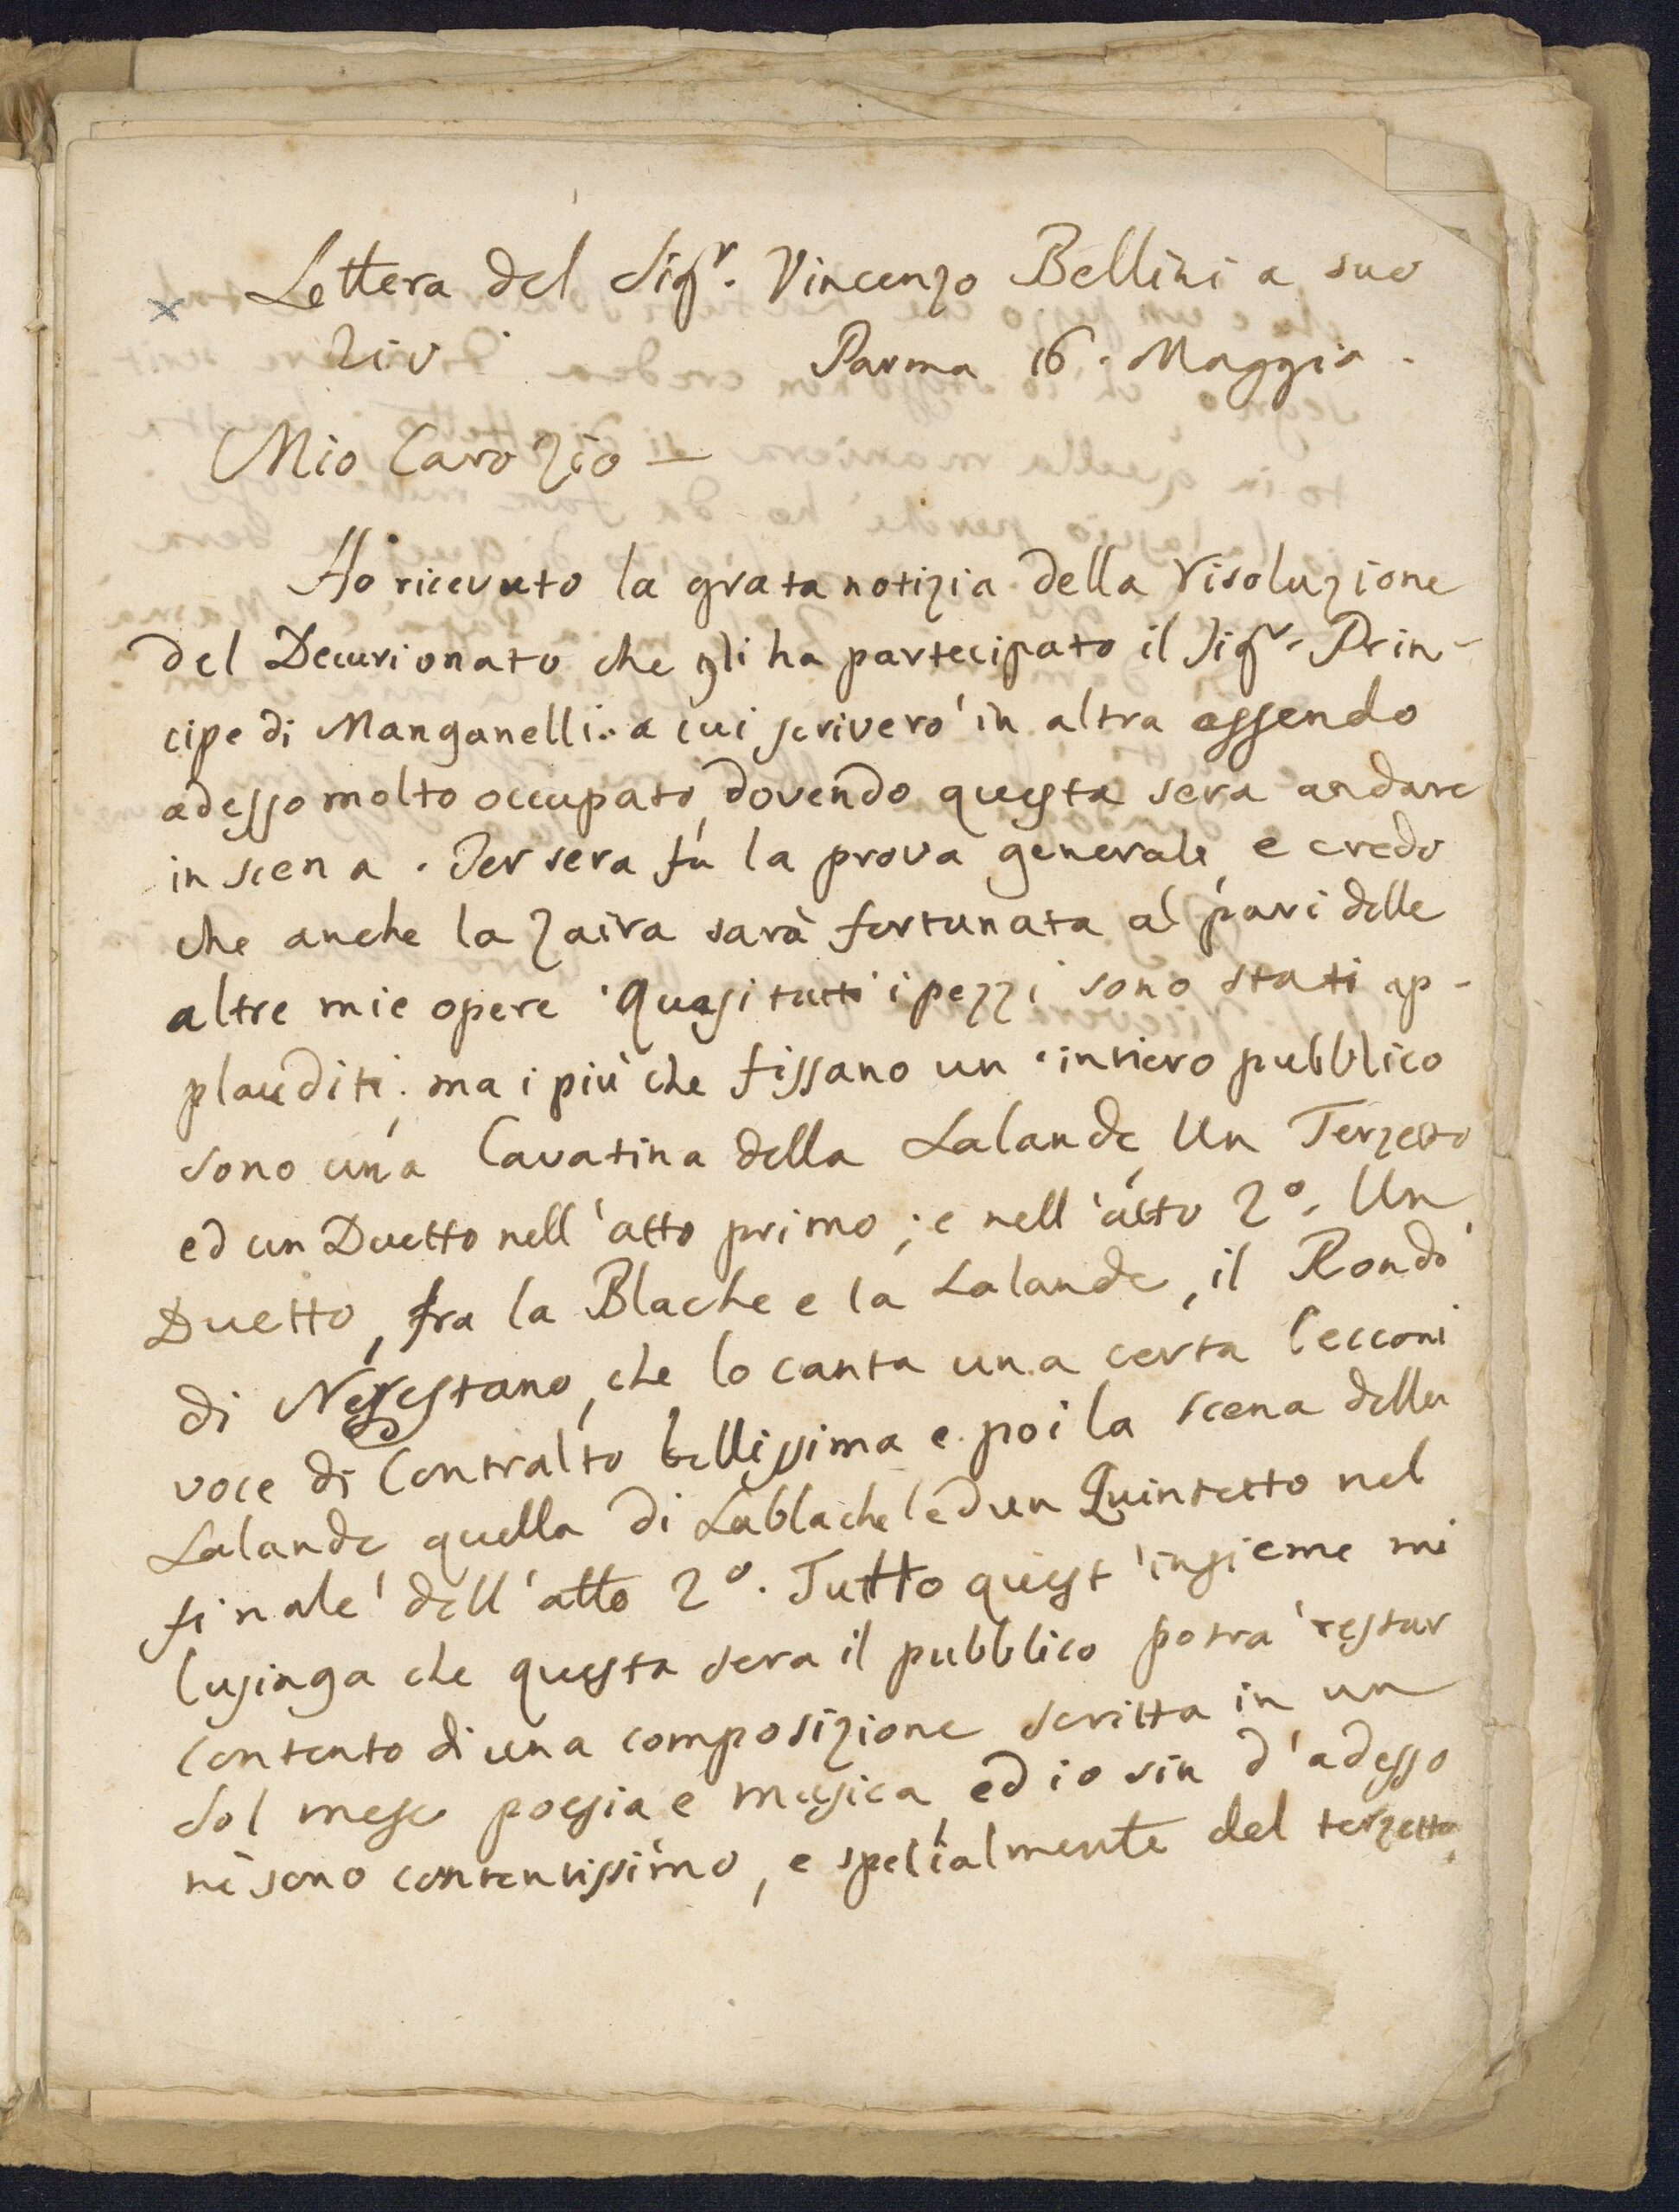 Lettera del Sigr. Vincenzo Bellini a suo
Zio Parma 16. Maggio.
Mio Caro Zio —
Ho ricevuto la grata notizia della risoluzione
del Decurionato che gli ha partecipato il Sigr. Prin-
cipe di Manganelli: a cui scriverò in altra essendo
adesso molto occupato, dovendo questa sera andare
in scena. Jer sera fù la prova generale, e credo
che anche la Zaira sarà fortunata al pari delle
altre mie opere. Quasi tutti i pezzi sono stati ap-
plauditi; ma i più che fissano un' intiero pubblico
sono una Cavatina della Lalande, Un Terzetto
ed un Duetto nell'atto primo; e nell'atto 2°. Un
Duetto, fra la Blache e la Lalande, il Rondò
di Nerestano, che lo canta una certa Cecconi
voce di Contralto bellissima e poi la scena della
Lalande quella di Lablache ed un Quintetto nel
finale dell'atto 2°. Tutto quest'insieme mi
lusinga che questa sera il pubblico potrà restar
contento di una composizione scritta in un
sol mese poesia e musica, ed io sin d'adesso
nè sono contentissimo, e specialmente del terzetto